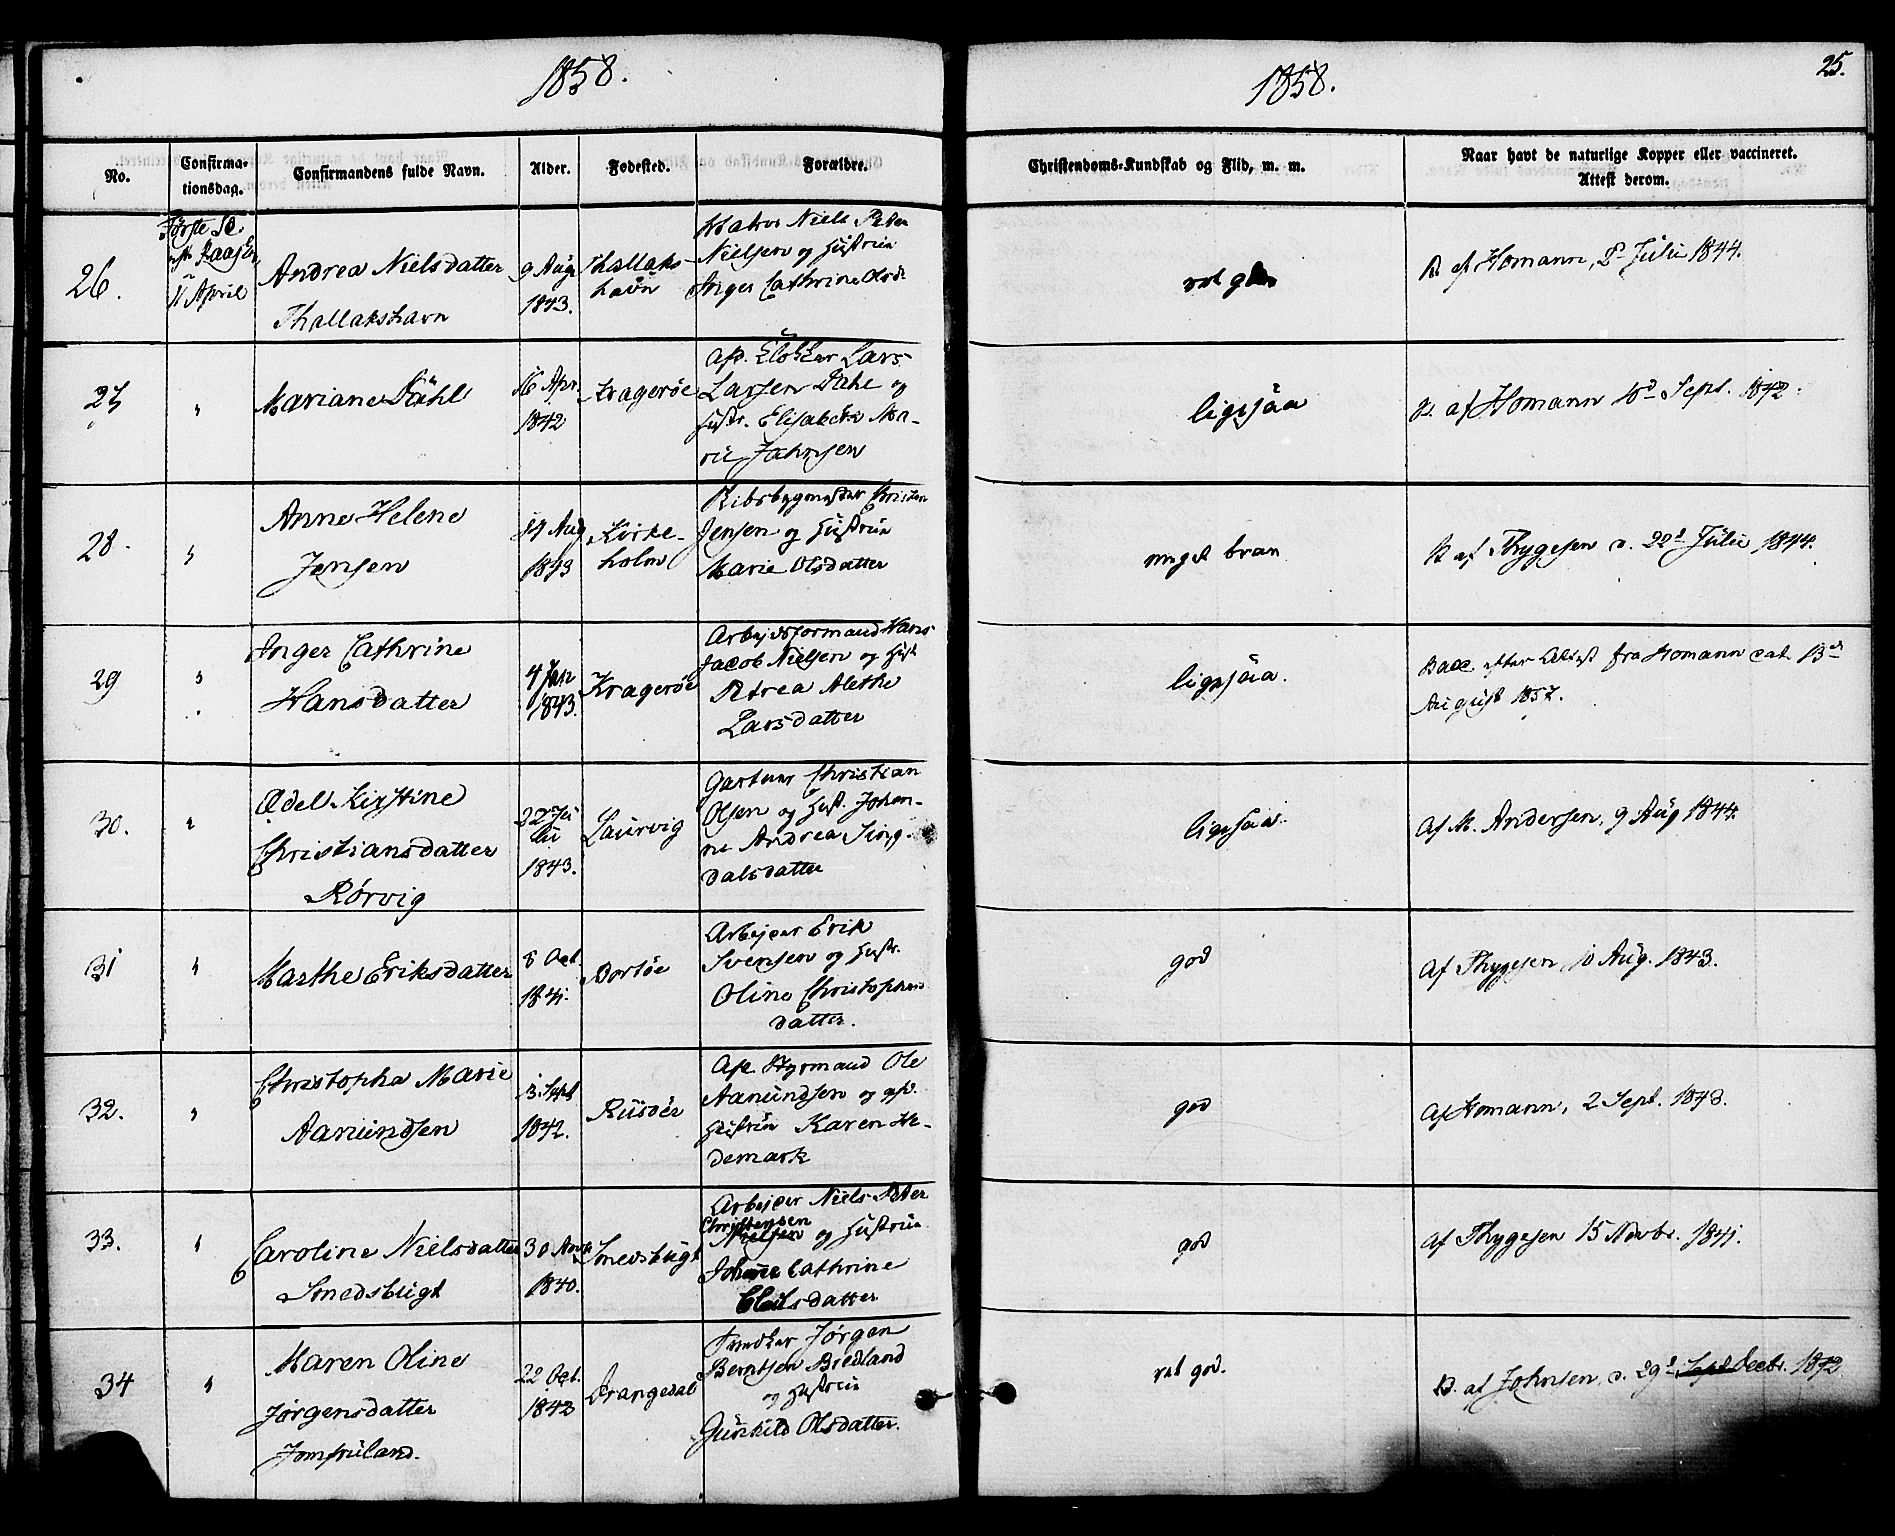 1858.
1858.
25.
No.
Confirma-
tionsdag.
Confirmandens fulde Navn.
Alder.
Fødested.
Forældre.
Christendoms-Kundskab og Flid, m. m.
Naar havt de naturlige Kopper eller vaccineret.
Attest derom.
26.
Første Se.
11 April
Andrea Nielsdatter
Thallakshavn
9 Aug
1843.
Thallaks-
havn
Niels Peter
Nielsen og Hustrue
Inger Cathrine Olsd
V. af Homann, 8de Julii 1844.
27
"
Mariane Dahl
16 Apr.
1842
Kragerøe
afd. Klokker Lars
Larsen Dahl og
Hustr. Elisabeth Ma-
rie Jahnsen
ligesaa
V. af Homann Sept. 1842.
28.
"
Anne Helene
Jensen
14 Aug
1843
Kirke-
holm
Ribsbygmester Christen
Jensen og Hustrue
Marie Olsdatter
meget brav
V af Thygesen d. 22d Julii 1844.
29
"
Inger Cathrine
Hansdatter
4 Jan
1843.
Kragerøe
Arbejdsformand Hans
Jacob Nielsen og Hust
Petrea Alethe
Larsdatter
ligesaa.
Vacc. efter Attest fra Homann dat. 13de
August 1857.
30.
"
Edel Kirstine
Christiansdatter
Rørvig
22 Ju
lii
1843.
Laurvig
Gartner Christian
Olsen og Hust. Johan-
ne Andrea
dalsdatter
ligesaa.
Af M. Andersen, 9 Aug 1844.
31
"
Marthe Eriksdatter
8 Oct.
1841.
Portøe
Arbejder Erik
Svensen og Hustr.
Oline Christophers
datter.
god
Af Thygesen, 10 Aug. 1843.
32.
"
Christopha Marie
Aanundsen
3 Sept
1842.
Riisøer
Afd. Styrmand Ole
Aanundsen og afd.
Hustrue Karen He-
demark
god
Af Homann, 2 Sept. 1843.
33.
"
Caroline Nielsdatter
Smedsbugt
30
1840.
Smedsbugt
Arbejder Niels Peter
Christensen
Nielsen og Hustrue
Johanne Cathrine
datter
god
Af Thygesen 15 Novbr. 1841.
34
"
Maren Oline
Jørgensdatter
Jomfruland.
22 Oct.
1842
Drangedal
Snedker Jørgen
Berntsen Bredland
og Hustrue
Gunhild Olsdatter.
ret god.
V. af Johnsen, d. 29d Sept Decbr. 1842